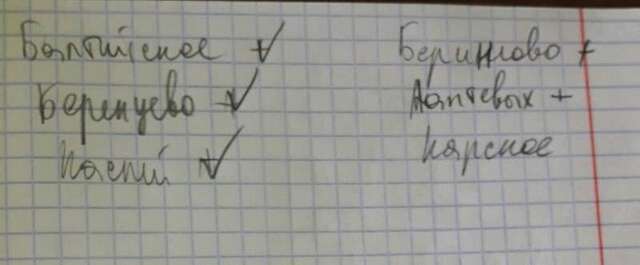 Балтийское +✓
Беренцево +✓
Каспий +✓
Берингово +
Лаптевых +
Карское